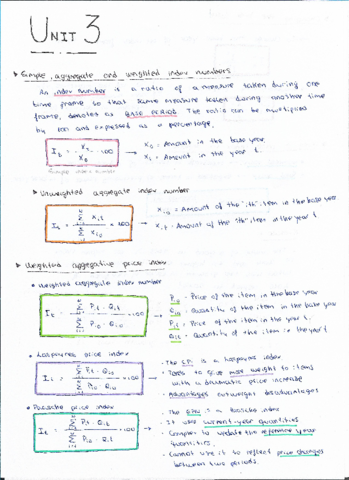 UNIT 3
Simple, aggregate and weighted index numbers
An index number is a ratio of a measure taken during one
time frame to that same measure taken during another time
frame, denoted as base period. The ratio can be multiplied
by 100 and expressed as a percentage.
I_t = X_t / X_0 · 100
X_0 = Amount in the base year
X_t = Amount in the year t.
Simple index number
Unweighted aggregate index number
I_t = Σ X_it / Σ X_i0 × 100
X_i0 = Amount of the "ith" item in the base year
X_it = Amount of the "ith" item in the year t
Weighted aggregative price index
• Weighted aggregate index number
I_t = Σ P_it · Q_it / Σ P_i0 · Q_i0 · 100
P_i0 - Price of the item in the base year
Q_i0 - Quantity of the item in the base year
P_it - Price of the item in the year t.
Q_it - Quantity of the item in the year t
• Laspeyres price index
I_t = Σ P_it · Q_i0 / Σ P_i0 · Q_i0 · 100
- The CPI is a Laspeyres index
- Tends to give more weight to items
with a dramatic price increase
- Advantages outweigh disadvantages
• Paasche price index
I_t = Σ P_it · Q_it / Σ P_i0 · Q_it · 100
- The is a Paasche index
- It uses current-year quantities
- to update the reference year
quantities.
- Cannot use it to reflect price changes
between two periods.